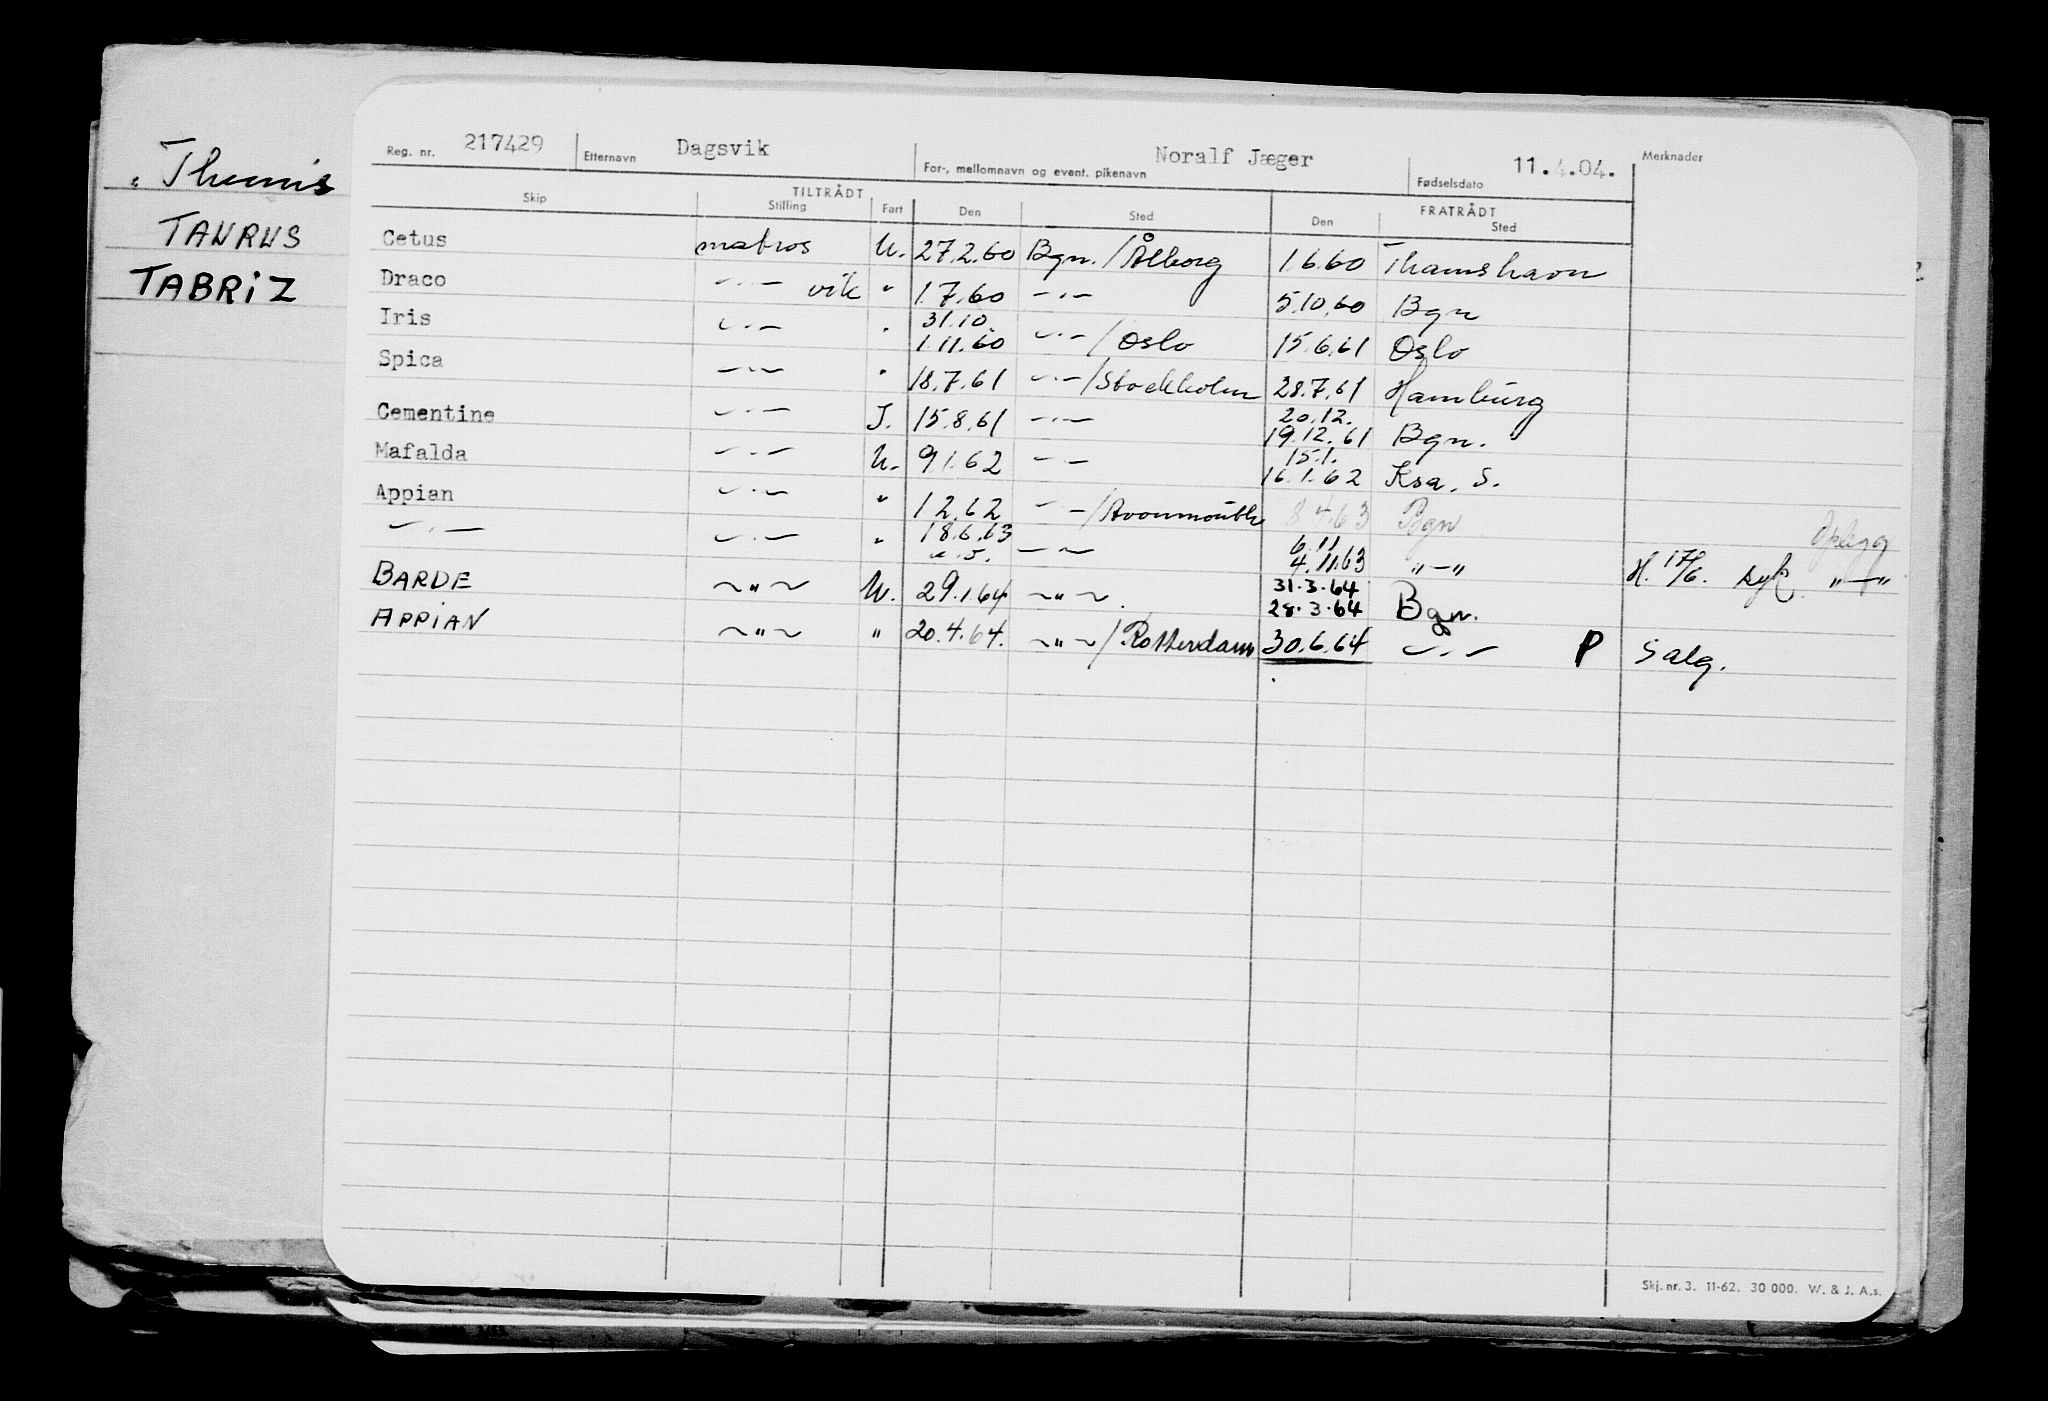 " Themis
TAURUS
TABRIZ
Reg. nr. 217429 Etternavn Dagsvik For-, mellomnavn og event. pikenavn Noralf Jæger Fødselsdato 11.4.04. Merknader
TILTRÅDT FRATRÅDT
Skip Stilling Fart Den Sted Den Sted
Cetus matros U. 27.2.60 Bgn./Ålborg 1.6.60 Thamshavn
Draco —"— vik " 1.7.60 —"— 5.10.60 Bgn
31.10.
Iris —"— " 1.11.60 —"—/Oslo 15.6.61 Oslo
Spica —"— " 18.7.61 —"—/Stockholm 28.7.61 Hamburg
20.12.
Cementine —"— I. 15.8.61 —"— 19.12.61 Bgn.
15.1.
Mafalda —"— U. 9.1.62 —"— 16.1.62 Ksa. S.
Appian —"— " 1.2.62 —"—/Avonmouth 8.4.63 Bgn Opplegg
—"— —"— " 18.6.63 —"— 6.11
4.11.63 "—" H. 17/6. syk. "—"
31.3.64
BARDE ~"~ U. 29.1.64 ~"~. 28.3.64 Bgn.
APPIAN ~"~ " 20.4.64. ~"~/Rotterdam 30.6.64 —"— P Salg.
Skj. nr. 3. 11-62. 30 000. W. & J. A.s.